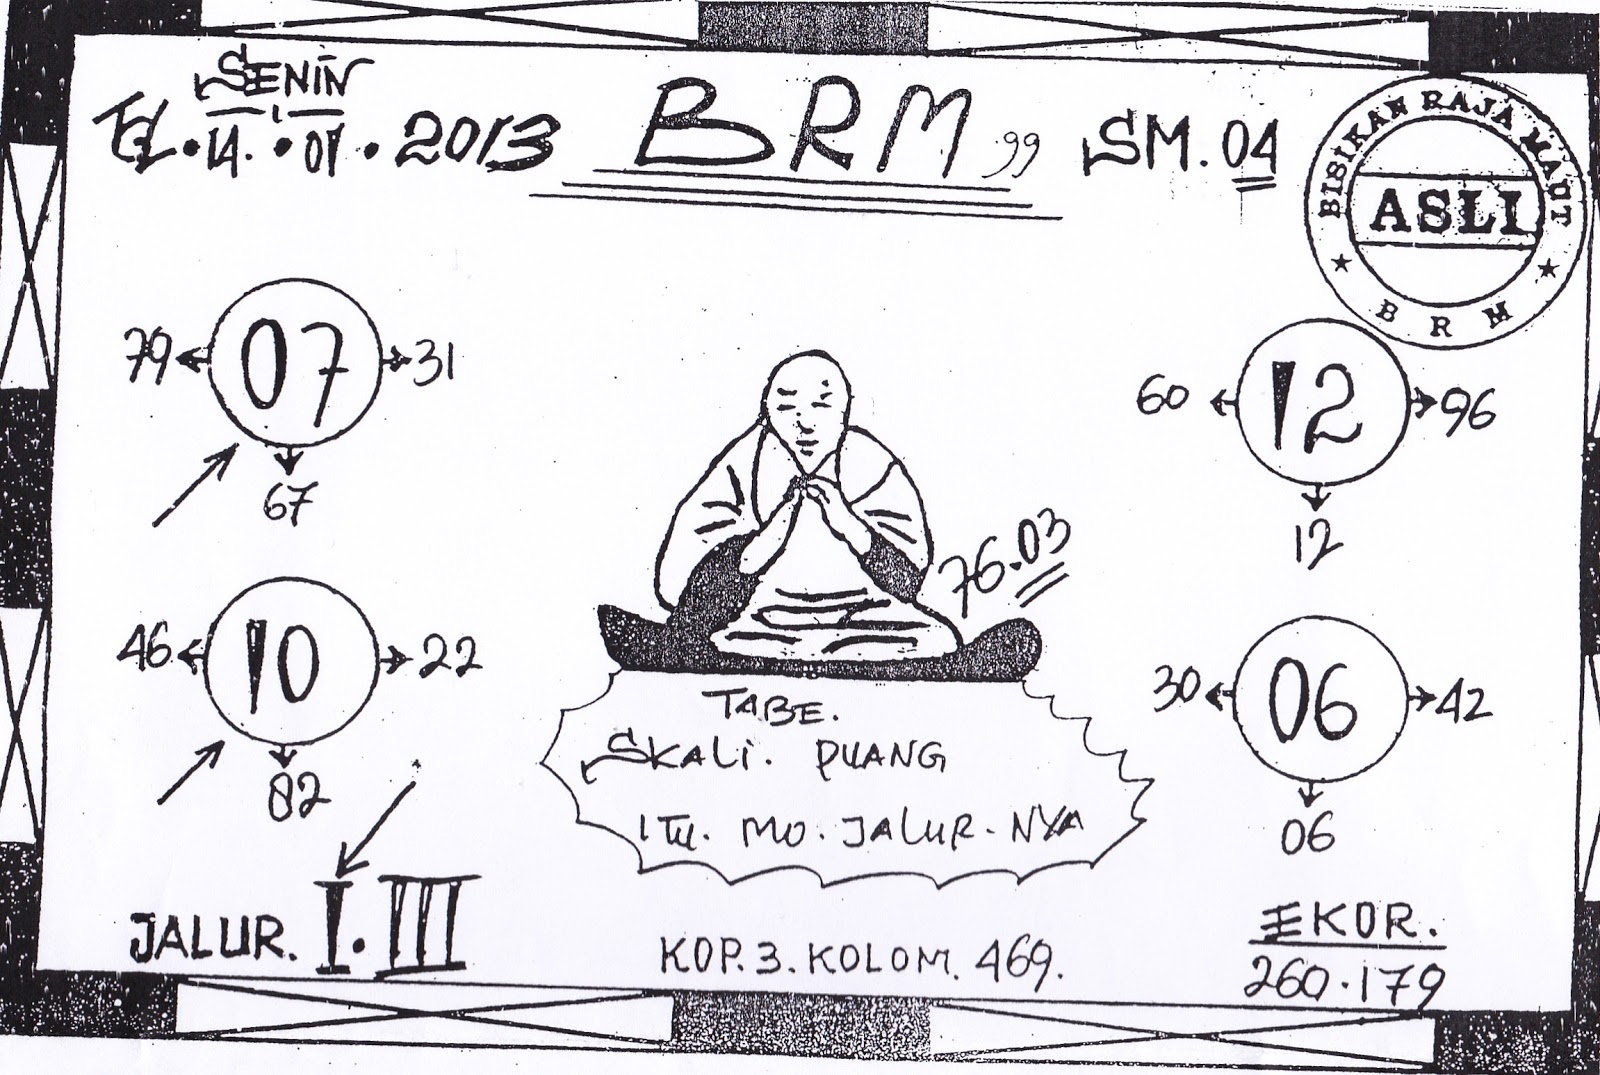 SENIN
TGL. 14. 01. 2013 BRM,, SM. 04
BISIKAN RAJA MAUT
ASLI
★ B R M ★
79 07 31
67
60 12 96
12
76.03
46 10 22
82
30 06 42
06
TABE.
SKALI. PUANG
ITU. MO. JALUR. NYA
JALUR. I. III
KOP. 3. KOLOM. 469.
EKOR.
260.179